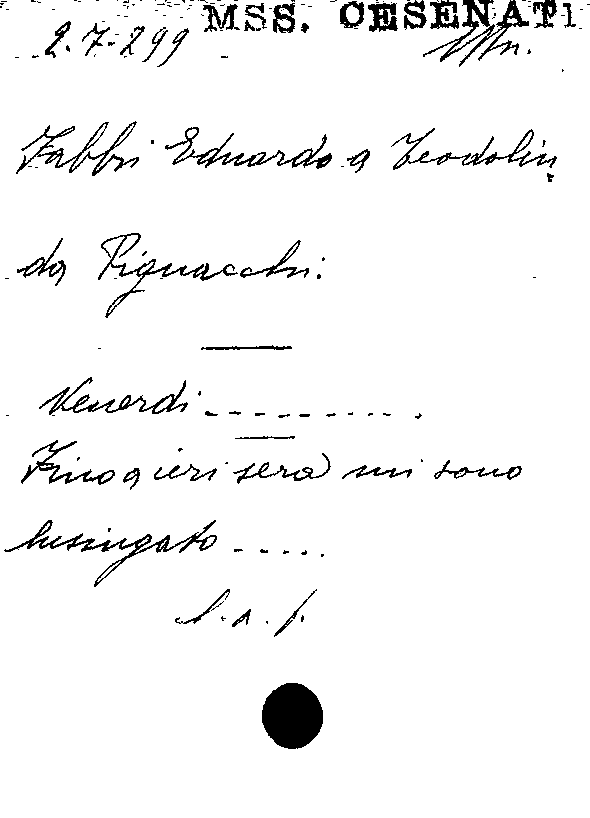 MSS. CESENATI
2.7.299
Fabbri Eduardo a Teodolin
da Pignacchi:
Venerdi ..........
Fino a ieri sera mi sono
lusingato .....
l.a.f.